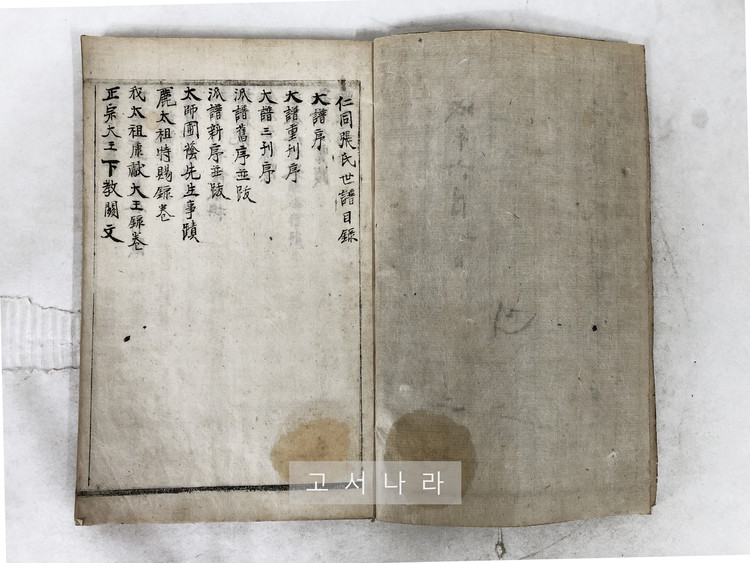 仁同張氏世譜目錄
大譜序
大譜重刊序
大譜三刊序
派譜舊序並跋
派譜新序並跋
太師團蔭先生事蹟
麗太祖特賜錄卷
我太祖康獻大王錄卷
正宗大王下教關文
고서나라